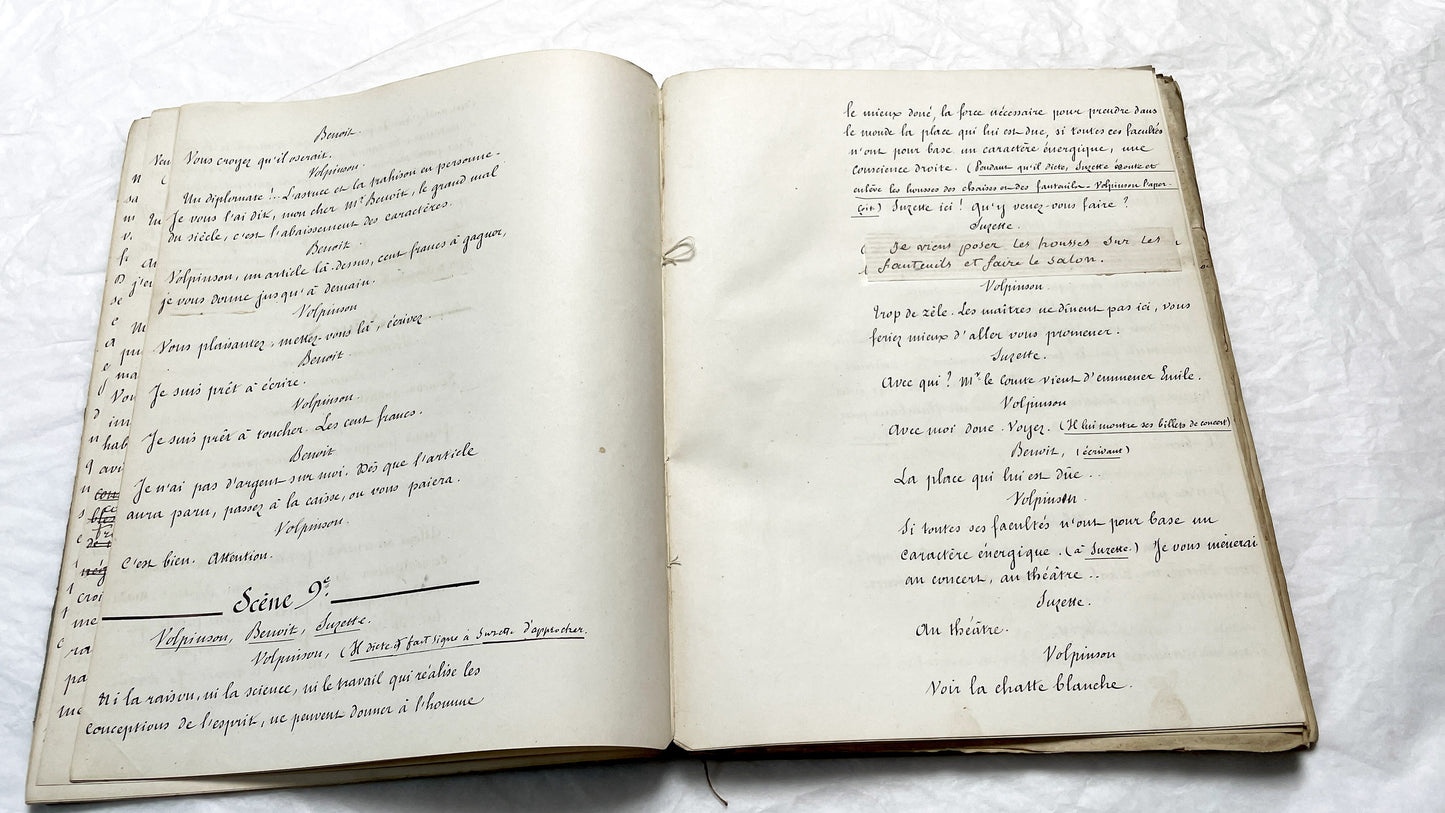 Benoit.
Vous croyez qu'il oserait.
Volpinson.
Un diplomate !.. L'astuce et la trahison en personne.
Je vous l'ai dit, mon cher Mr Benoit, le grand mal
du siècle, c'est l'abaissement des caractères.
Benoit.
Volpinson, un article là-dessus, cent francs à gagner,
je vous donne jusqu'à demain.
Volpinson
Vous plaisantez, mettez-vous là, écrivez.
Benoit.
Je suis prêt à écrire.
Volpinson.
Je suis prêt à toucher. Les cent francs.
Benoit
Je n'ai pas d'argent sur moi. Dès que l'article
aura paru, passez à la caisse, on vous paiera.
Volpinson.
C'est bien. Attention.
Scène 9e.
Volpinson, Benoit, Suzette.
Volpinson, (Il dicte & fait signe à Suzette d'approcher.
Ni la raison, ni la science, ni le travail qui réalise les
conceptions de l'esprit, ne peuvent donner à l'homme
le mieux doué, la force nécessaire pour prendre dans
le monde la place qui lui est due, si toutes ces facultés
n'ont pour base un caractère énergique, une
conscience droite. (Pendant qu'il dicte, Suzette écoute et
enlève les housses des chaises ou des fauteuils - Volpinson l'aper-
çoit) Suzette ici ! Qu'y venez-vous faire ?
Suzette.
Je viens poser les housses sur les
fauteuils et faire le salon.
Volpinson.
Trop de zèle. Les maîtres ne dînent pas ici, vous
feriez mieux d'aller vous promener.
Suzette.
Avec qui ? Mr le comte vient d'emmener Emile.
Volpinson
Avec moi donc. Voyez. (Il lui montre ses billets de concert)
Benoit, (écrivant)
La place qui lui est dûe ..
Volpinson.
Si toutes ses facultés n'ont pour base un
caractère énergique. (à Suzette.) Je vous mènerai
au concert, au théâtre ..
Suzette.
Au théâtre.
Volpinson
Voir la chatte blanche.